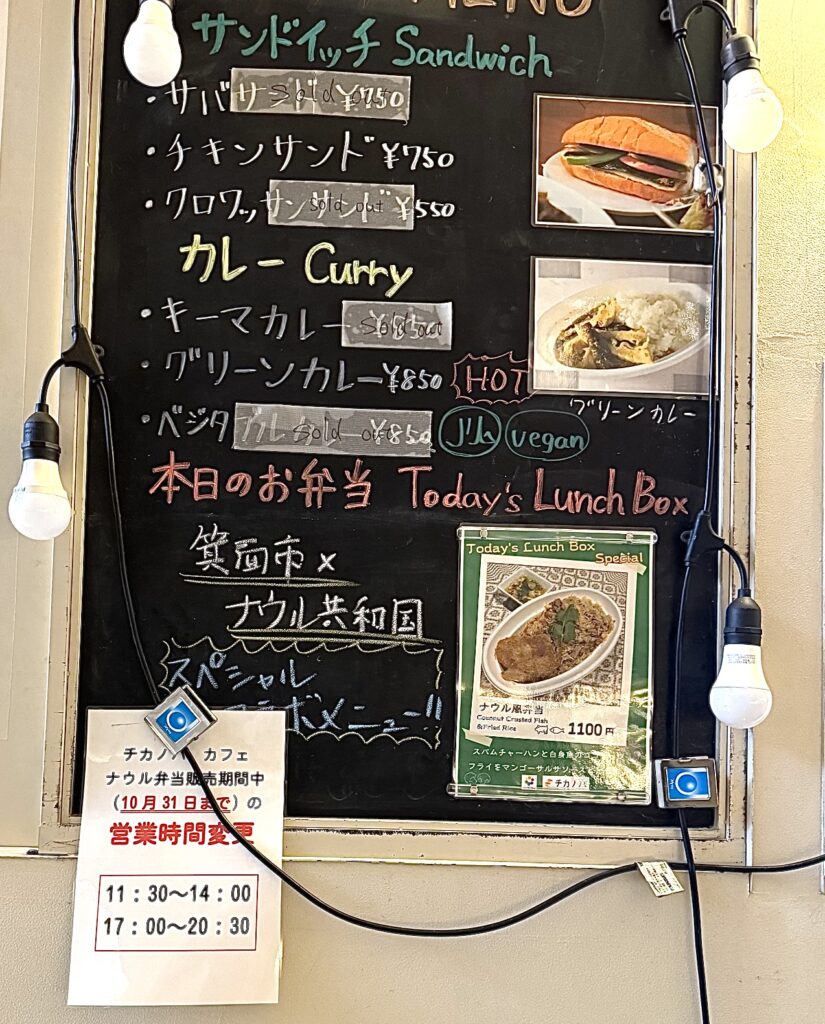 MENU
サンドイッチ Sandwich
・サバサンド ¥750 sold out
・チキンサンド ¥750
・クロワッサンサンド ¥550 sold out
カレー Curry
・キーマカレー sold out
・グリーンカレー ¥850 HOT
グリーンカレー
・ベジタ カレー ¥850 sold out vegan
本日のお弁当 Today's Lunch Box
箕面市 x
ナウル共和国
スペシャル
コラボメニュー!!
Today's Lunch Box
Special
ナウル風弁当
Coconut Crusted Fish
& Fried Rice 1100円
スパムチャーハンと白身魚のココ
フライをマンゴーサルサソース
チカノバ
チカノバ カフェ
ナウル弁当販売期間中
(10月31日まで)の
営業時間変更
11:30～14:00
17:00～20:30